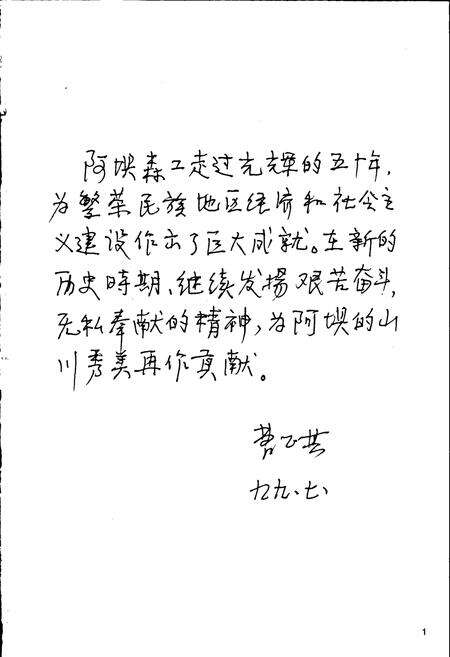 阿坝森工走过光辉的五十年,
为繁荣民族地区经济和社会主
义建设作出了巨大成就。在新的
历史時期、继续发揚艰苦奋斗,
无私奉献的精神,为阿坝的山
川秀美再作贡献。
九九、七、
1